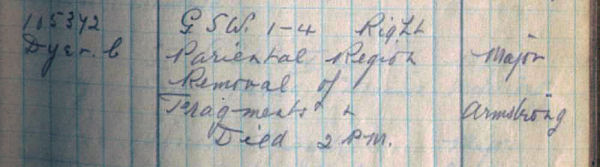 115372 G.S.W. 1-4 Right
Dyer. C Pariental Region Major
Removal of
Fragments & Armstrong
Died 2 P.M.